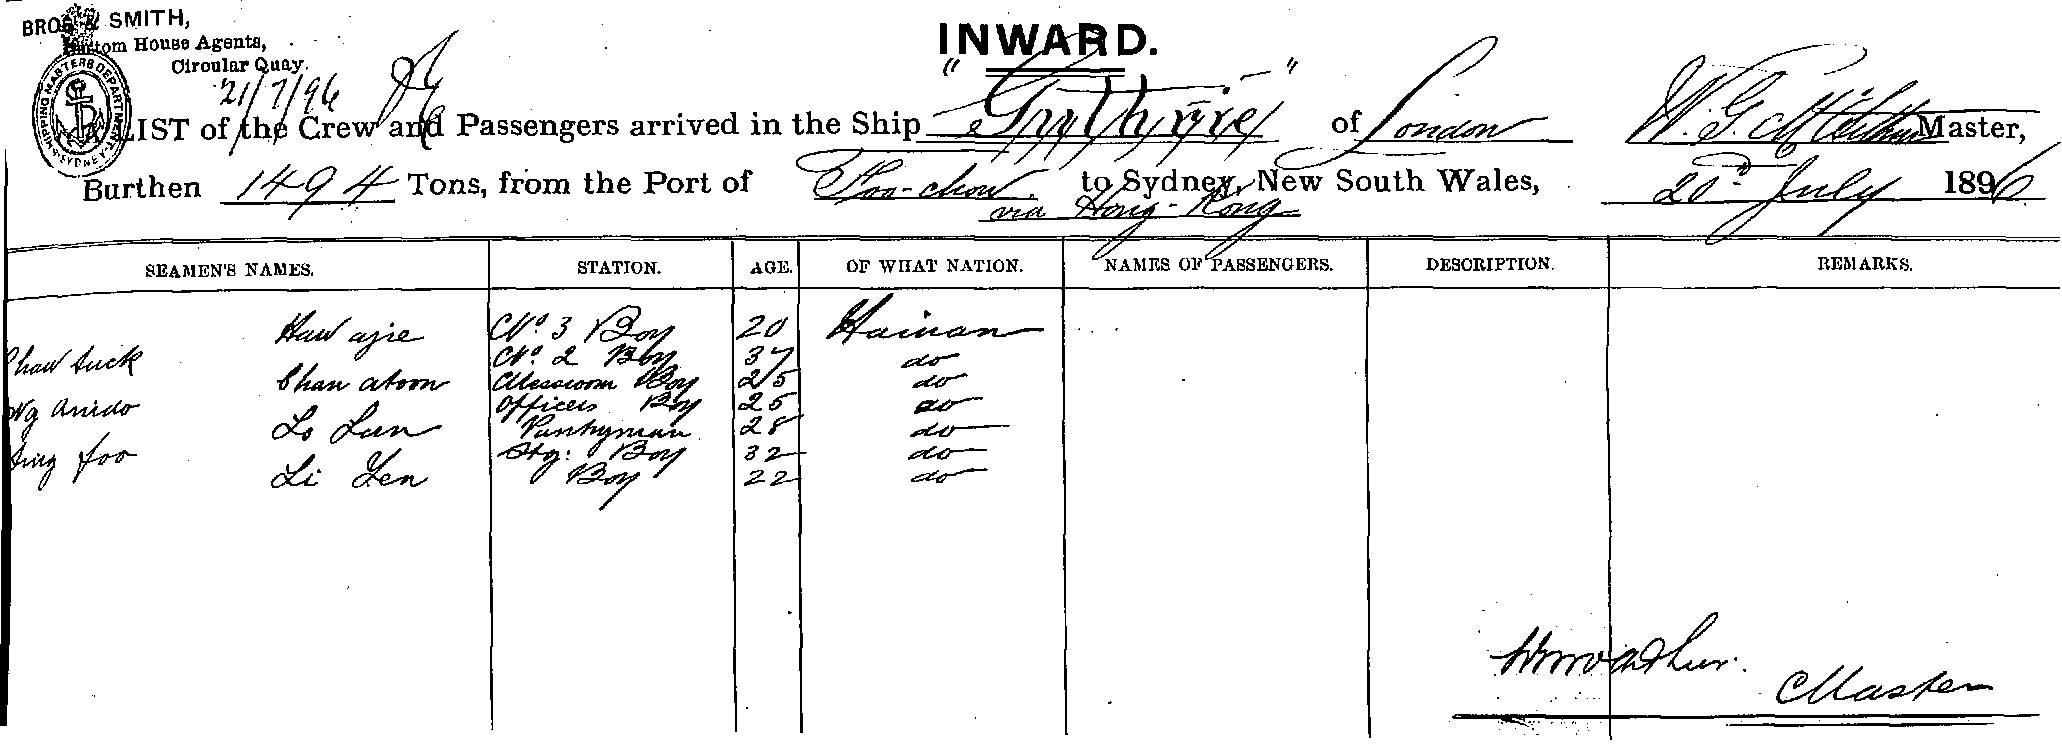 BROS & SMITH,
Custom House Agents,
Circular Quay.
21/7/96
SHIPPING MASTERS DEPARTMENT SYDNEY
INWARD.
A LIST of the Crew and Passengers arrived in the Ship "Guthrie" of London W. G. McArthur Master,
Burthen 1494 Tons, from the Port of Foo-chow to Sydney, New South Wales, 20th July 1896
via Hong-Kong
SEAMEN'S NAMES. STATION. AGE. OF WHAT NATION. NAMES OF PASSENGERS. DESCRIPTION. REMARKS.
Haw ajie No. 3 Boy 20 Hainan
Chaw tuck No. 2 Boy 37 do
Chan atoon Messroom Boy 25 do
Ng Anido Officers Boy 25 do
Lo Lun Pantryman 28 do
foo Stg: Boy 32 do
Li Yen Boy 22 do
Master